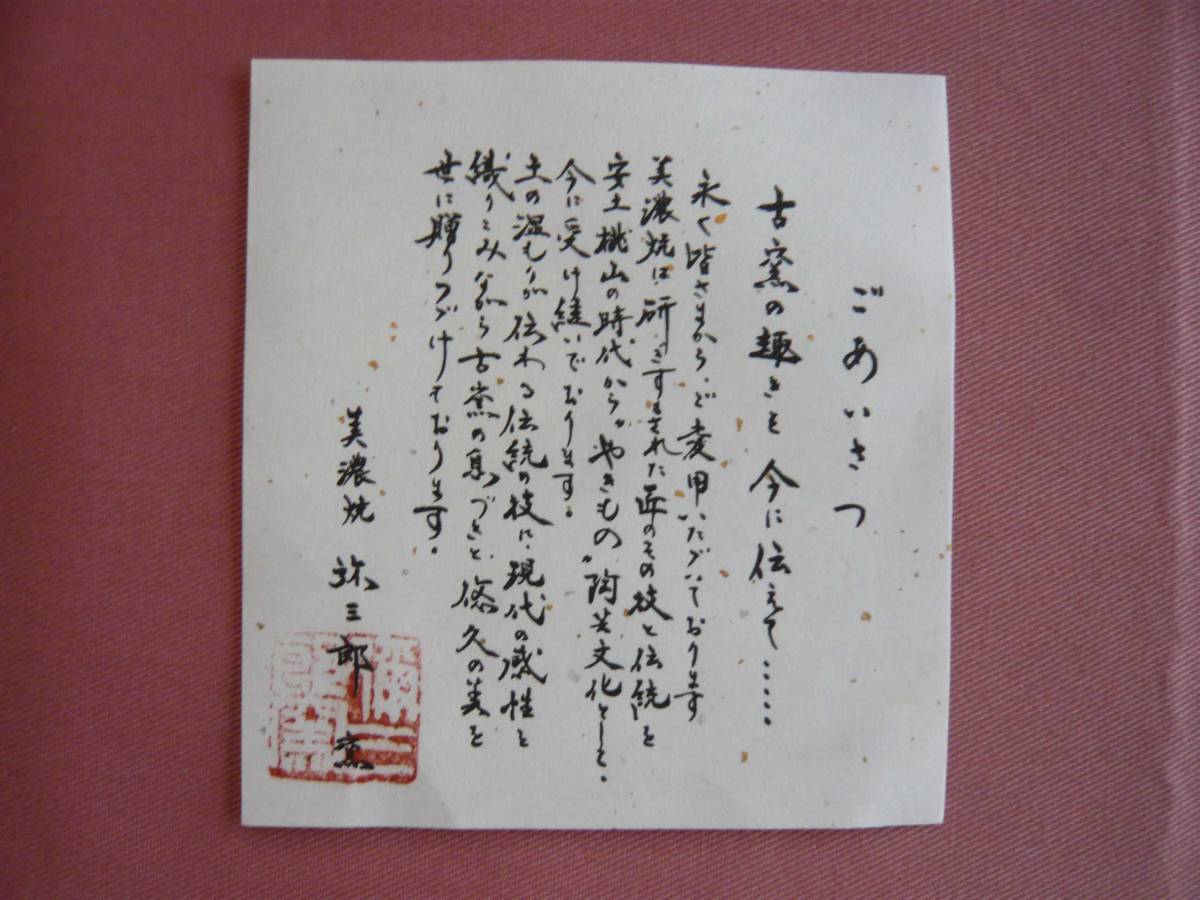 ごあいさつ
古窯の趣きを今に伝えて……
永く皆さまから、ご愛用いただいております
美濃焼は、研ぎすまされた匠のその技と伝統を
安土桃山の時代から〝やきもの〟陶芸文化として、
今に受け継いでおります。
土の温もりが伝わる伝統の技に、現代の感性を
織りこみながら古窯の息づきと、悠久の美を
世に贈りつづけております。
美濃焼 弥三郎窯
彌三郎窯